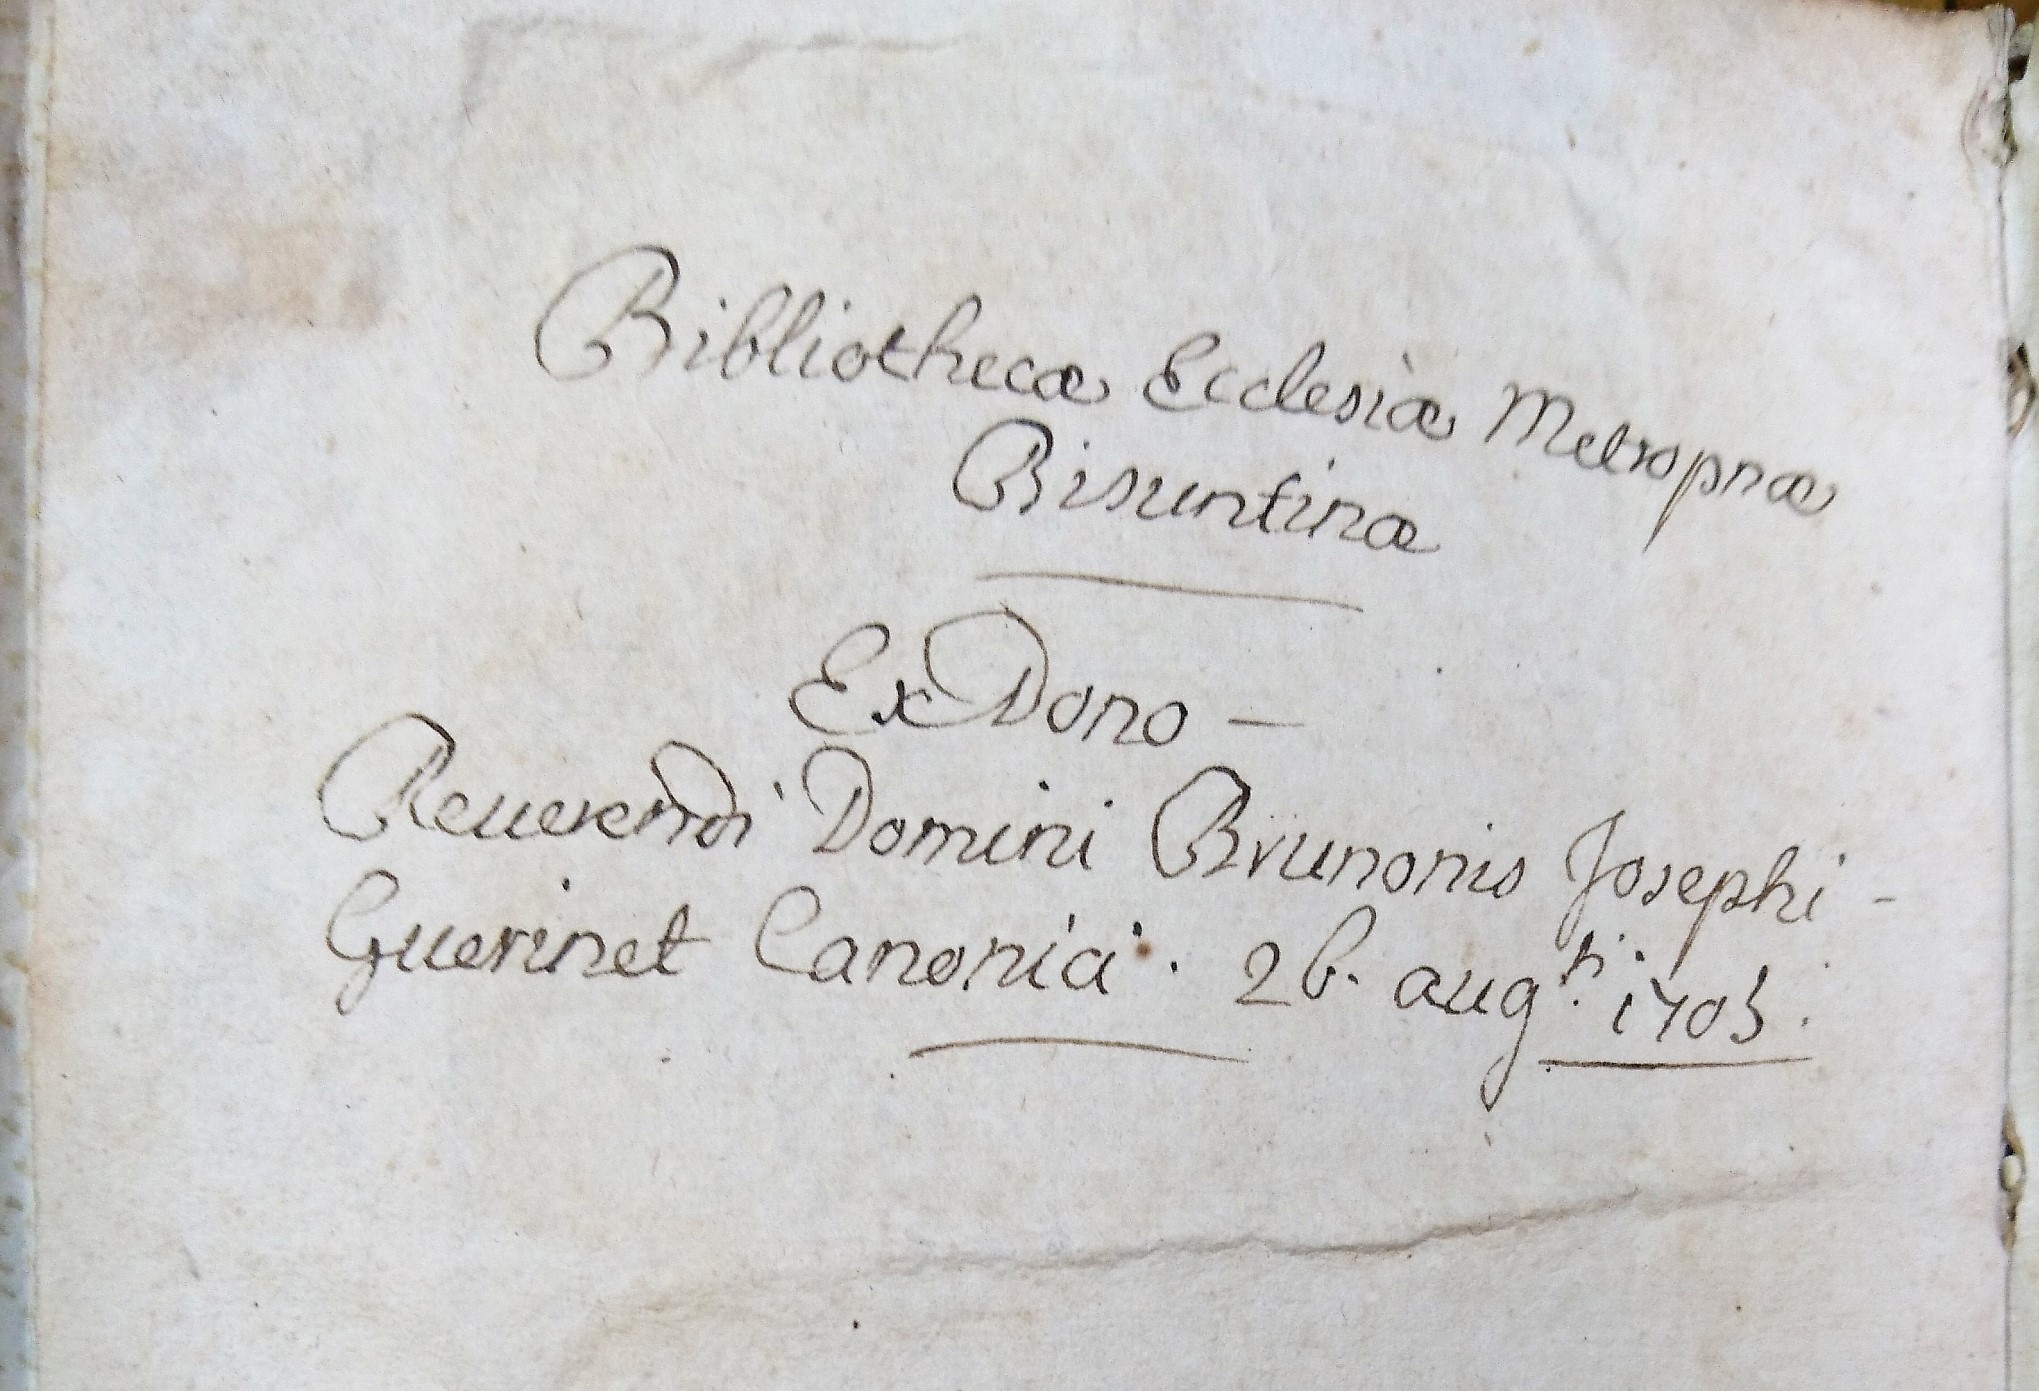 Bibliothecæ Ecclesiæ Metropnæ
Bisuntinæ
Ex Dono -
Reuerendi Domini Brunonis Josephi -
Guerinet Canonici. 26. augti. 1703.